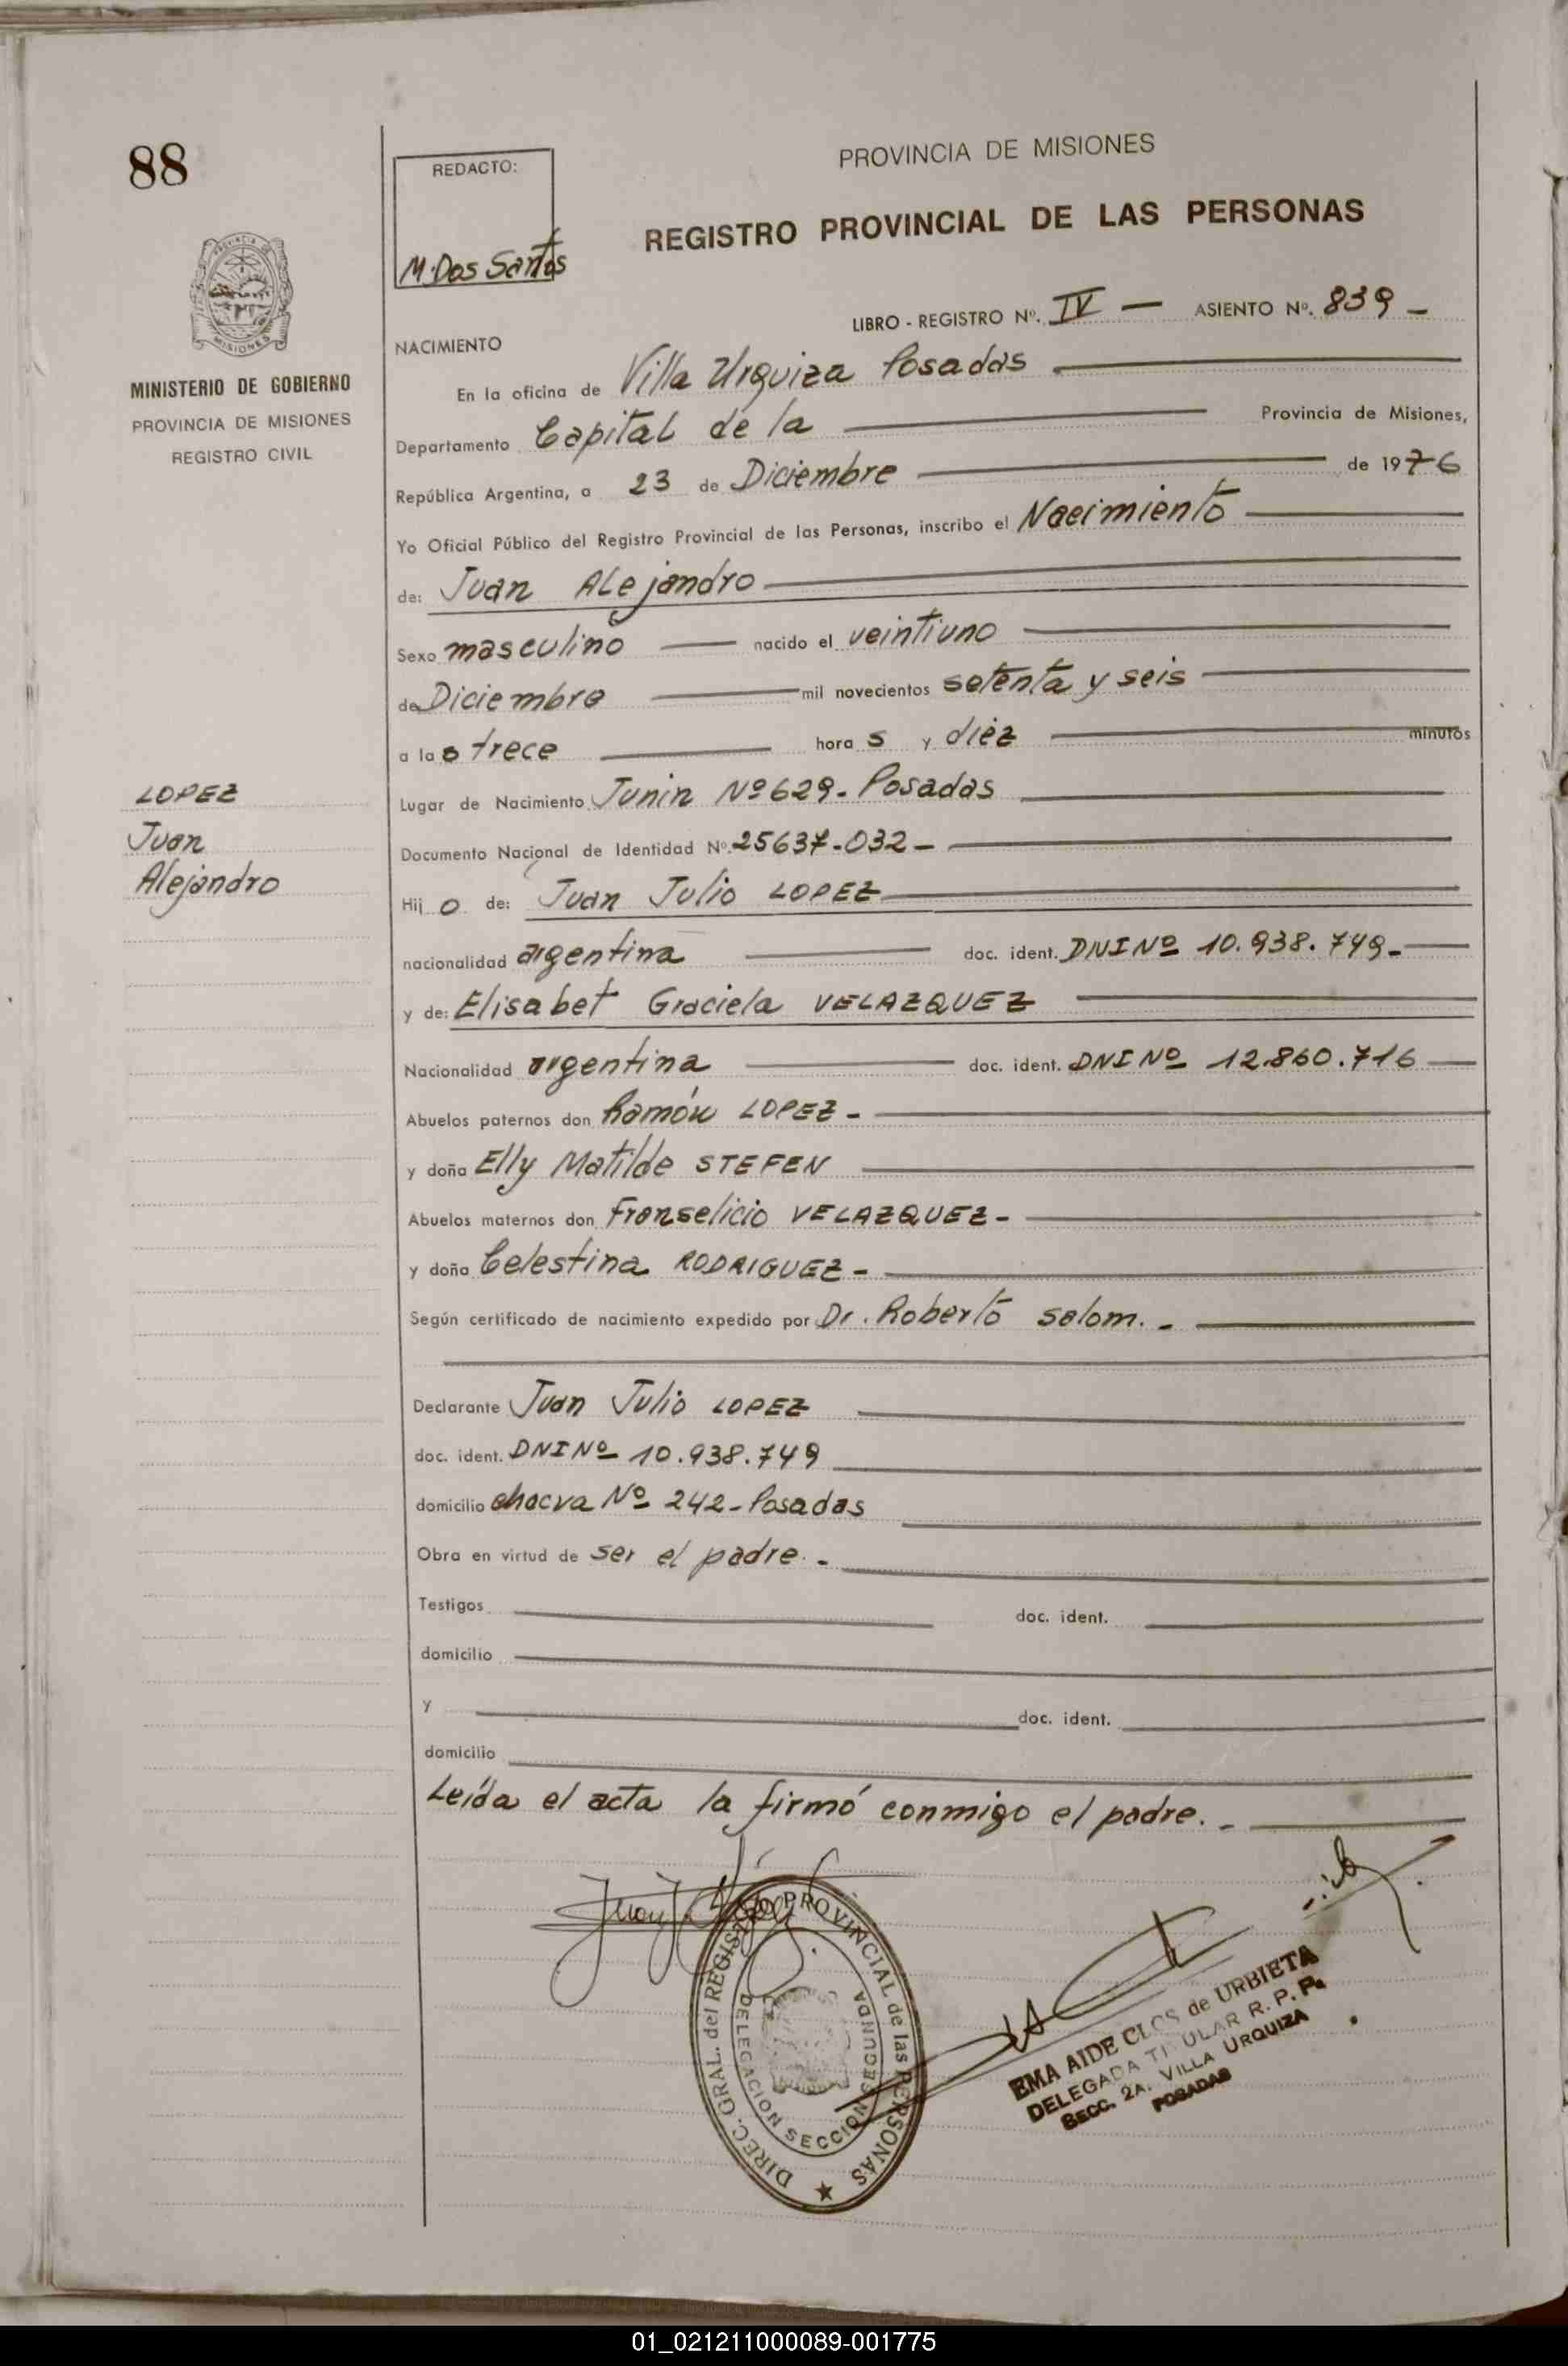 88
REDACTO:
M. Dos Santos
PROVINCIA DE MISIONES
REGISTRO PROVINCIAL DE LAS PERSONAS
MISIONES
MINISTERIO DE GOBIERNO
PROVINCIA DE MISIONES
REGISTRO CIVIL
LIBRO - REGISTRO Nº. IV — ASIENTO Nº. 839 -
NACIMIENTO
En la oficina de Villa Urquiza Posadas
Departamento Capital de la Provincia de Misiones,
República Argentina, a 23 de Diciembre de 1976
Yo Oficial Público del Registro Provincial de las Personas, inscribo el Nacimiento
de: Juan Alejandro
Sexo masculino nacido el veintiuno
de Diciembre mil novecientos setenta y seis
a las trece horas y diez minutos
Lugar de Nacimiento Junin Nº 629- Posadas
Documento Nacional de Identidad Nº. 25637-032-
Hijo de: Juan Julio LOPEZ
nacionalidad argentina doc. ident. DNI Nº 10.938.749-
y de: Elisabet Graciela VELAZQUEZ
Nacionalidad argentina doc. ident. DNI Nº 12.860.716
Abuelos paternos don Ramón LOPEZ-
y doña Elly Matilde STEFEN
Abuelos maternos don Franselicio VELAZQUEZ-
y doña Celestina RODRIGUEZ-
Según certificado de nacimiento expedido por Dr. Roberto Salom.-
Declarante Juan Julio LOPEZ
doc. ident. DNI Nº 10.938.749
domicilio chacra Nº 242-Posadas
Obra en virtud de ser el padre.-
Testigos doc. ident.
domicilio
y doc. ident.
domicilio
Leída el acta la firmó conmigo el padre.-
LOPEZ
Juan
Alejandro
DIREC. GRAL. del REGISTRO PROVINCIAL de las PERSONAS
DELEGACION SECCION SEGUNDA
EMA AIDE CLOS de URBIETA
DELEGADA TITULAR R. P. P.
SECC. 2A. VILLA URQUIZA
POSADAS
01_021211000089-001775